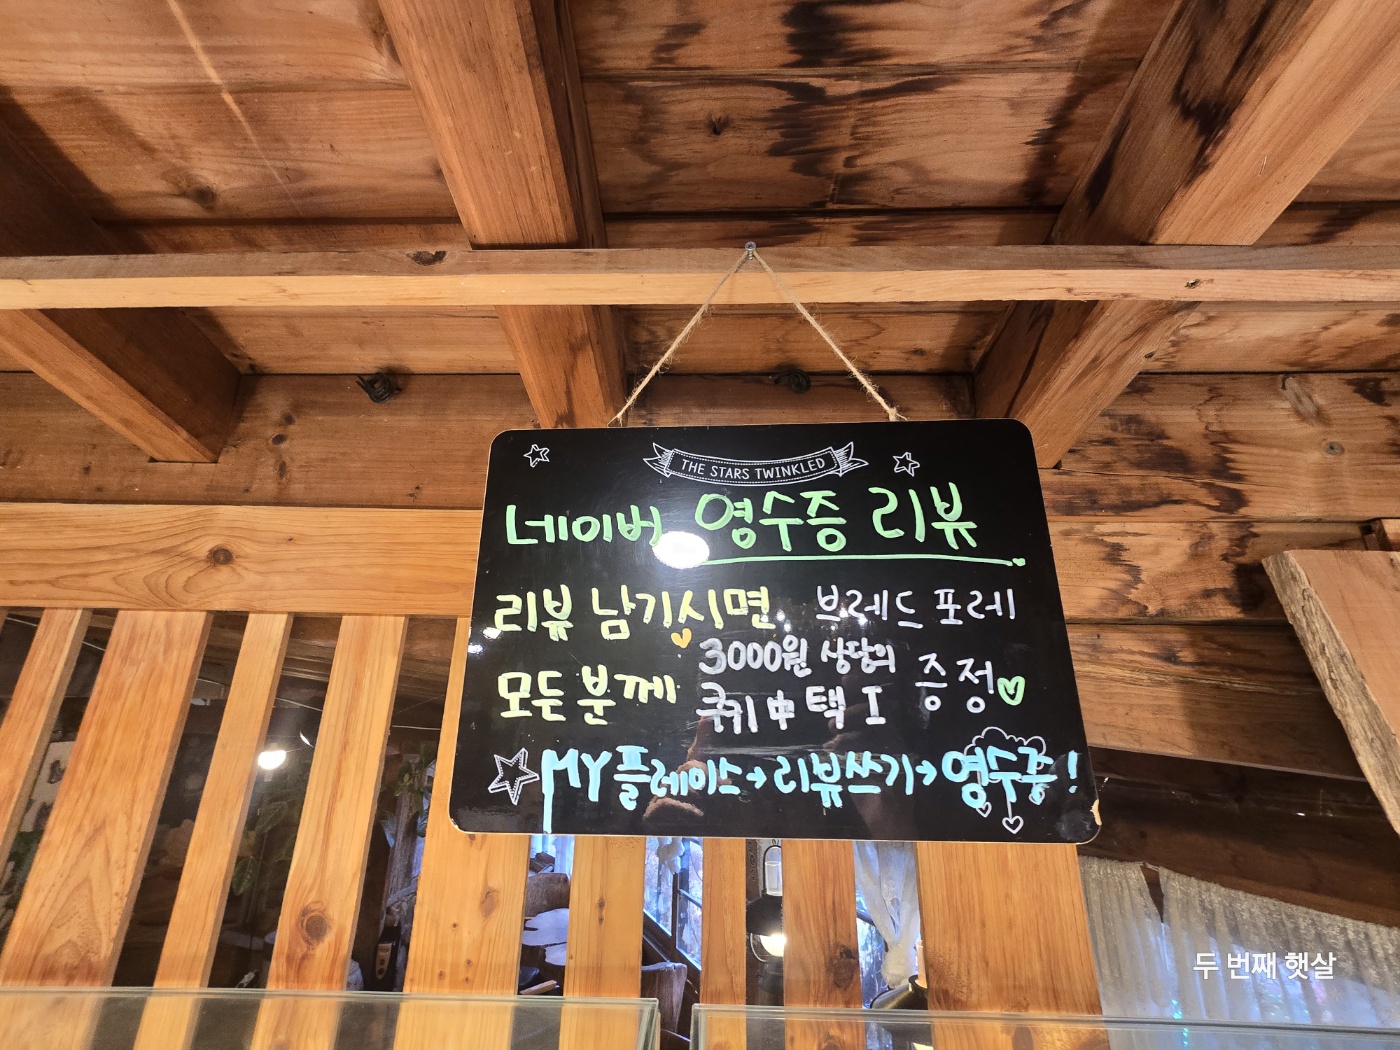 THE STARS TWINKLED
네이버 영수증 리뷰
리뷰 남기시면 브레드 포레
모든 분께 3000원 상당의
쿠키 中 택 I 증정
MY플레이스→리뷰쓰기→영수증!
두 번째 햇살